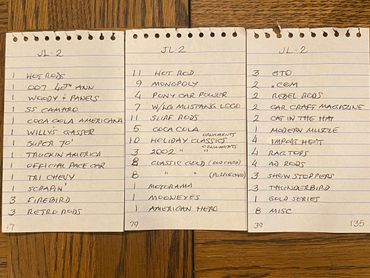 JL-2
1 HOT RODS
1 007 40TH ANN
1 WOODY & PANELS
1 SS CAMARO
1 COCA COLA AMERICANA
1 WILLYS GASSER
1 SUPER 70'
1 TRUCKIN AMERICA
1 OFFICIAL PACE CAR
1 TRI CHEVY
1 SCRAPIN'
3 FIREBIRD
3 RETRO RODS
17
JL-2
11 HOT ROD
9 MONOPOLY
4 PONY CAR POWER
7 W/LG MUSTANG LOGO
11 SURF RODS
5 COCA COLA
10 HOLIDAY CLASSICS ORNAMENTS
3 2002 " " ORNAMENTS
8 CLASSIC GOLD
8 " "
1 MOTORAMA
1 MOONEYES
1 AMERICAN HERO
79
JL-2
3 GTO
2 .COM
2 REBEL RODS
2 CAR CRAFT MAGAZINE
2 CAT IN THE HAT
1 MODERN MUSCLE
4 IMPORT HEAT
4 RAGTOPS
4 AD RODS
3 SHOW STOPPERS
3 THUNDERBIRD
1 GOLD SERIES
8 MISC
39
135